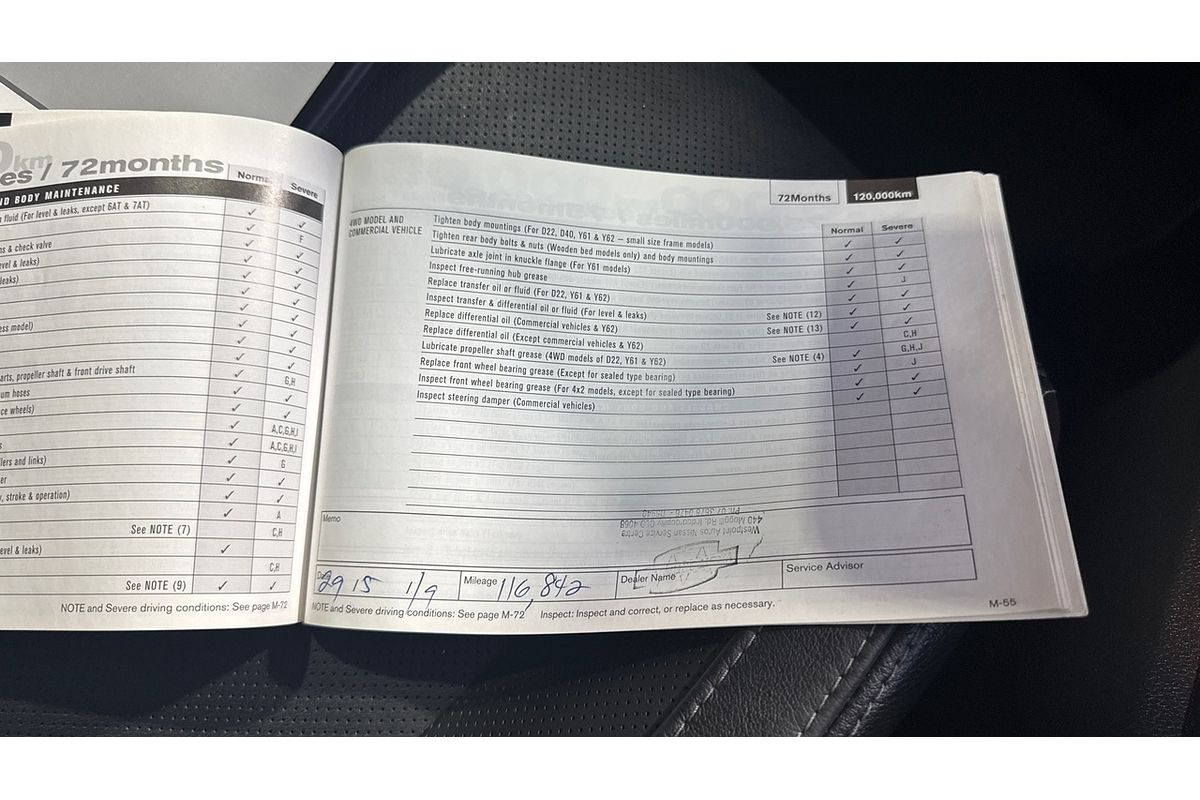 km
es / 72months
Normal
Severe
ND BODY MAINTENANCE
fluid (For level & leaks, except 6AT & 7AT)
F
ns & check valve
evel & leaks)
leaks)
ess model)
arts, propeller shaft & front drive shaft
G,H
um hoses
ce wheels)
A,C,G,H,J
s
A,C,G,H,J
lers and links)
G
er
, stroke & operation)
A
See NOTE (7)
C,H
evel & leaks)
C,H
See NOTE (9)
NOTE and Severe driving conditions: See page M-72
72Months
120,000km
Normal
Severe
4WD MODEL AND
COMMERCIAL VEHICLE
Tighten body mountings (For D22, D40, Y61 & Y62 – small size frame models)
Tighten rear body bolts & nuts (Wooden bed models only) and body mountings
Lubricate axle joint in knuckle flange (For Y61 models)
Inspect free-running hub grease
J
Replace transfer oil or fluid (For D22, Y61 & Y62)
Inspect transfer & differential oil or fluid (For level & leaks)
See NOTE (12)
Replace differential oil (Commercial vehicles & Y62)
See NOTE (13)
C,H
Replace differential oil (Except commercial vehicles & Y62)
G,H,J
Lubricate propeller shaft grease (4WD models of D22, Y61 & Y62)
See NOTE (4)
J
Replace front wheel bearing grease (Except for sealed type bearing)
Inspect front wheel bearing grease (For 4x2 models, except for sealed type bearing)
Inspect steering damper (Commercial vehicles)
Memo
Westpoint Autos Nissan Service Centre
440 Moggill Rd, Indooroopilly QLD 4068
Mileage 116,842
Dealer Name
Service Advisor
NOTE and Severe driving conditions: See page M-72
Inspect: Inspect and correct, or replace as necessary.
M-55